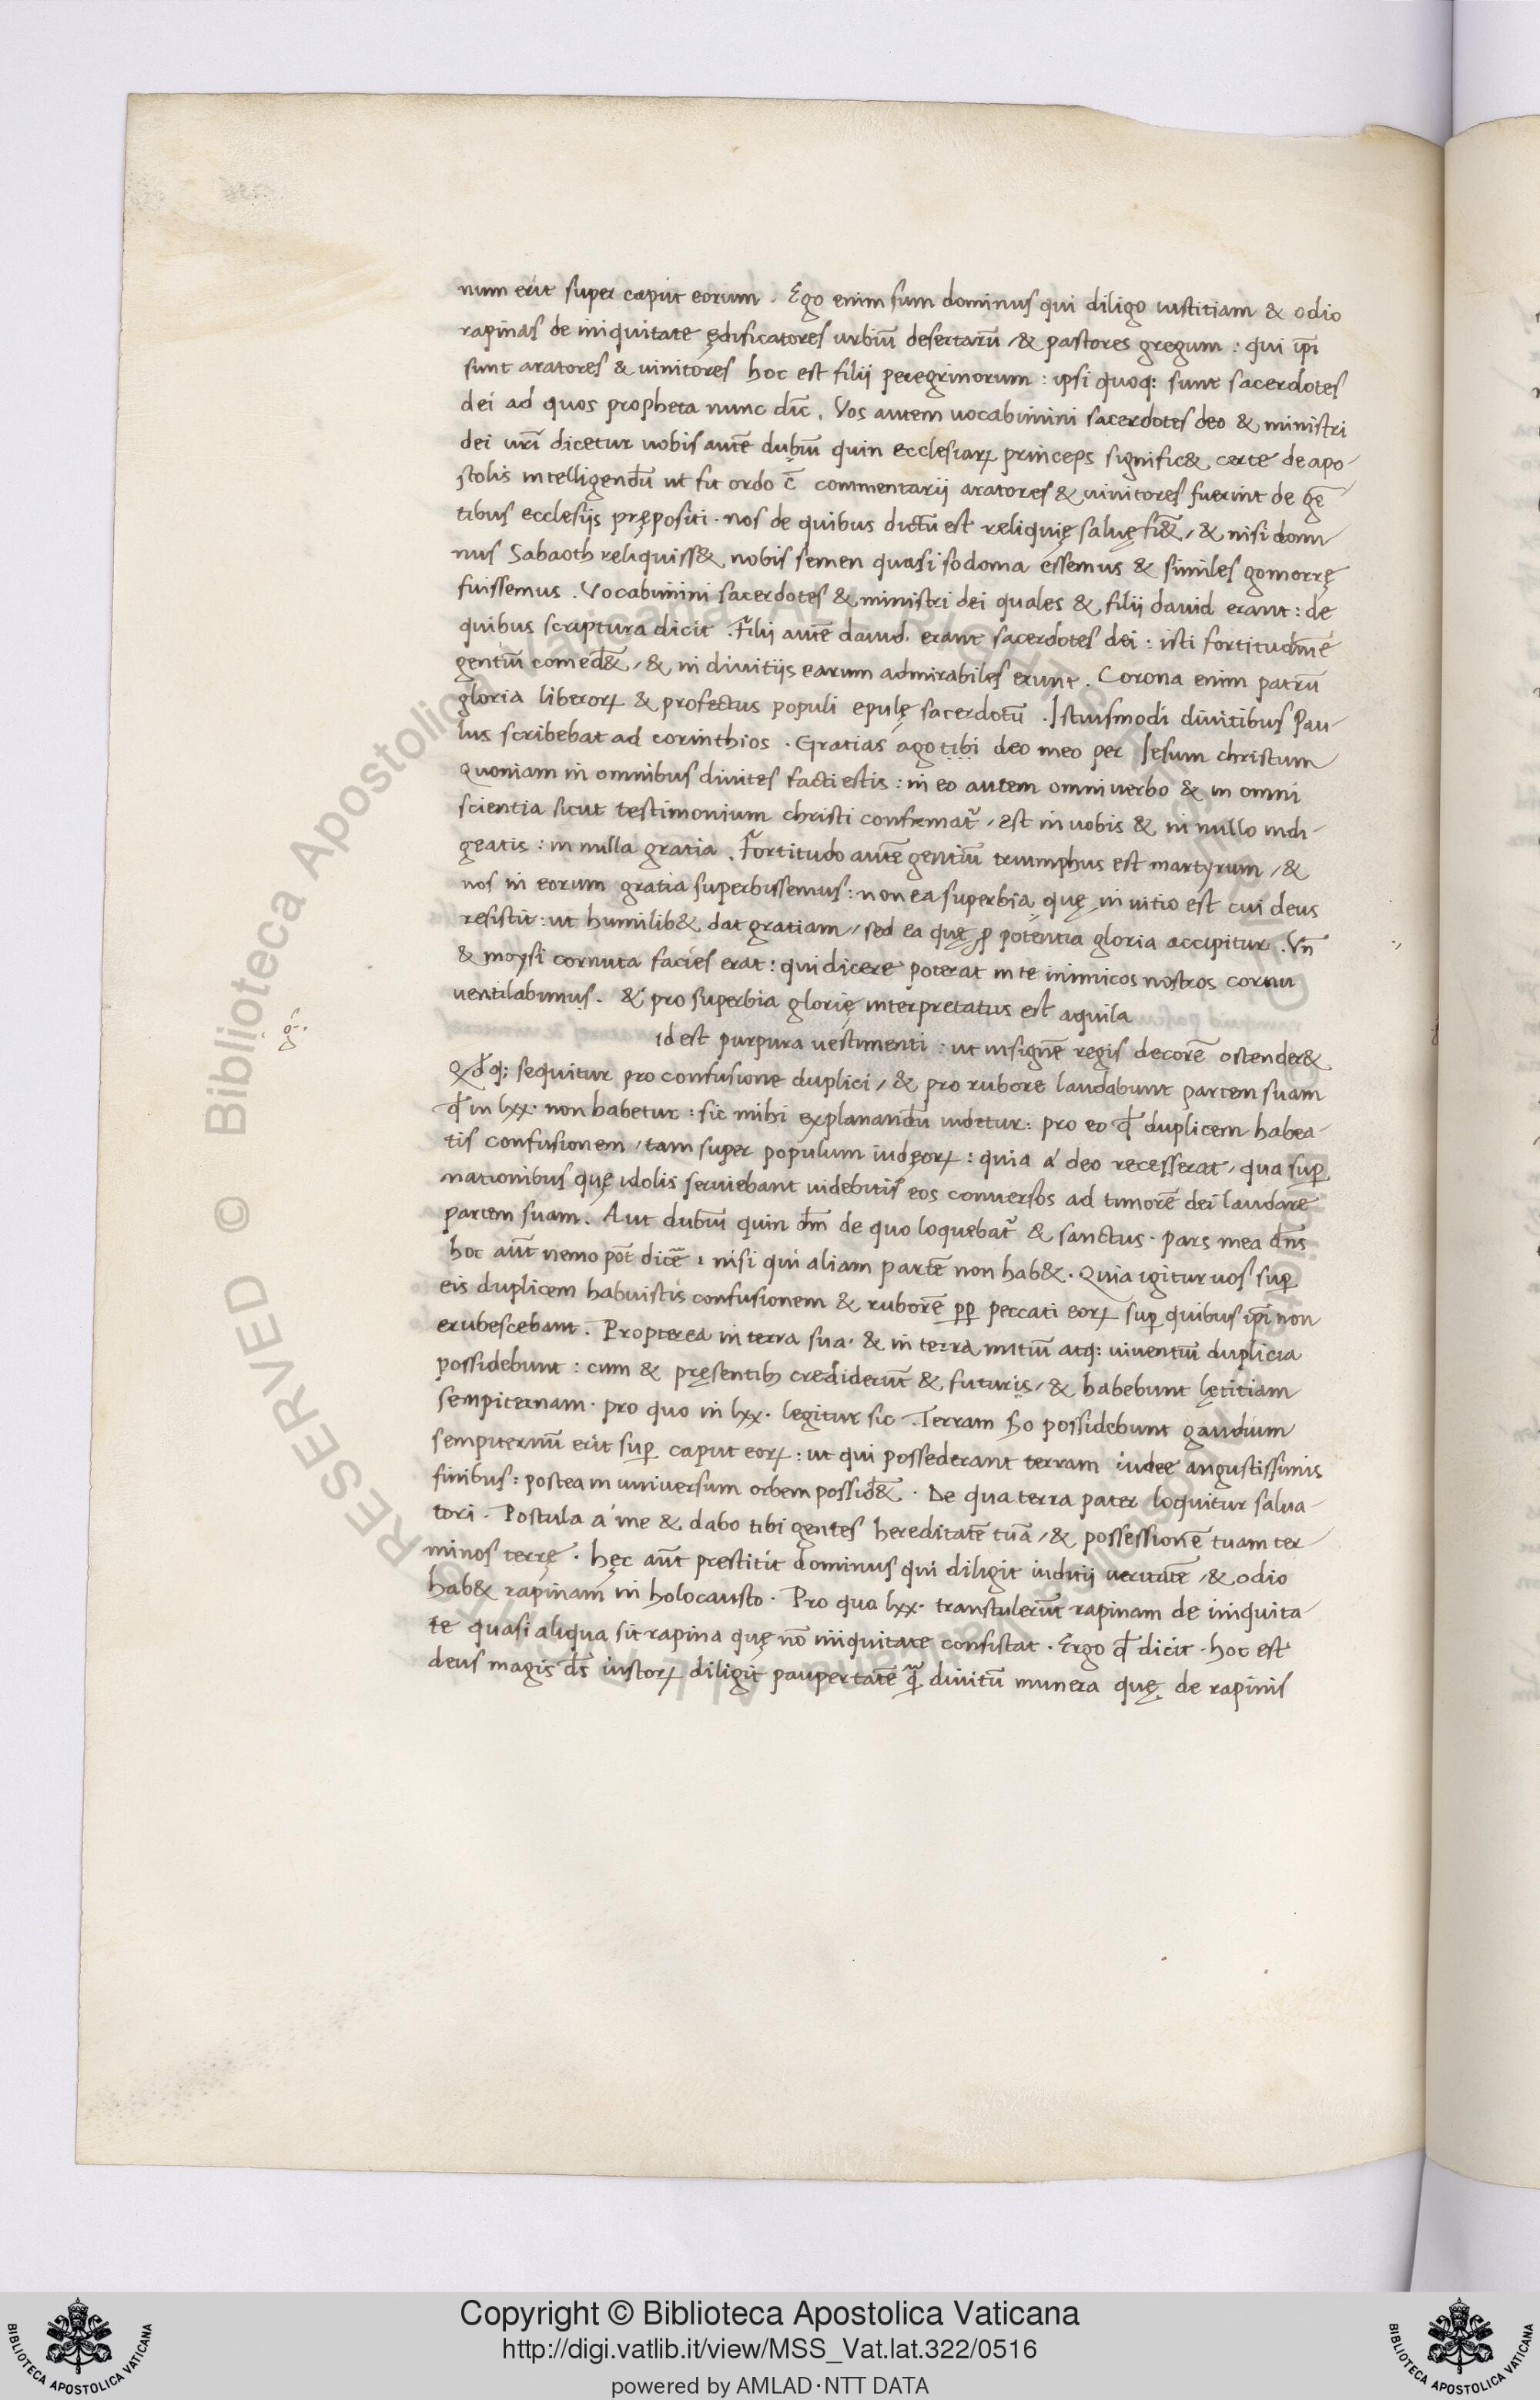 num erit super caput eorum. Ego enim sum dominus qui diligo iustitiam & odio
rapinas de iniquitate ędificatores urbiū desertarū / & pastores gregum : qui ip̄i
sunt aratores & uinitores hoc est filii peregrinorum : ipsi quoq; sunt sacerdotes
dei ad quos propheta nunc dic̄. Vos autem uocabimini sacerdotes deo & ministri
dei ur̄i dicetur uobis autē dubiū quin ecclesiaꝝ princeps signific& certe de apo-
stolis intelligendū ut sit ordo c̄ commentarij aratores & uinitores fuerint de gē
tibus ecclesijs prępositi. nos de quibus dictū est reliquię saluę fi&̄ / & nisi domi
nus Sabaoth reliquiss& nobis semen quasi sodoma essemus & similes gomorrę
fuissemus. Vocabimini sacerdotes & ministri dei quales & filij dauid erant : de
quibus scriptura dicit. Filij autē dauid erant sacerdotes dei : isti fortitudinē
gentiū comed&̄ / & in diuitijs earum admirabiles erunt. Corona enim patrū
gloria liberoꝝ & profectus populi epulę sacerdotū. Istiusmodi diuitibus Pau-
lus scribebat ad corinthios. Gratias ago tibi deo meo per Iesum christum
Quoniam in omnibus diuites facti estis : in eo autem omni uerbo & in omni
scientia sicut testimonium christi confirmat᷑ / est in uobis & in nullo indi-
geatis : in nulla gratia. Fortitudo autē gentiū triumphus est martyrum / &
nos in eorum gratia superbissemus : non ea superbia quę in uitio est cui deus
resistit : ut humilib& dat gratiam / sed ea quę ꝓ potentia gloria accipitur. Vn̄
& moysi cornuta facies erat : qui dicere poterat in te inimicos nostros cornu
uentilabimus. & pro superbia glorię interpretatus est aquila
id est purpura uestimenti : ut insignē regis decorē ostender&
Qd̄q; sequitur pro confusione duplici / & pro rubore laudabunt partem suam
qđ in lxx. non habetur : sic mihi explanandū uidetur : pro eo qđ duplicem habea-
tis confusionem / tam super populum iudęoꝝ : quia á deo recesserat / qua suꝑ
nationibus quę idolis seruiebant uidebitis eos conuersos ad timorē dei laudare
partem suam. Aut dubiū quin dn̄m de quo loquebat᷑ & sanctus. Pars mea dn̄s
hoc aūt nemo pōt dicē, nisi qui aliam partē non hab&. Quia igitur uos suꝑ
eis duplicem habuistis confusionem & ruborē ꝑꝑ peccati eoꝝ suꝑ quibus ip̄i non
erubescebant. Propterea in terra sua. & in terra mitiū atq; uiuentiū duplicia
possidebunt : cum & pręsentib; crediderūt & futuris / & habebunt lętitiam
sempiternam. pro quo in lxx. legitur sic. Terram ho possidebunt gaudium
sempiternū erit suꝑ caput eoꝝ : ut qui possederant terram iudee angustissimis
finibus : postea in uniuersum orbem possid&̄. De qua terra pater loquitur salua-
tori. Postula á me & dabo tibi gentes hereditatē tuā / & possessionē tuam ter-
minos terrę. hęc aūt prestitit dominus qui diligit iuditij ueritatē / & odio
hab& rapinam in holocausto. Pro quo lxx. transtulerūt rapinam de iniquita-
te quasi aliqua sit rapina quę nō iniquitate consistat. Ergo qđ dicit. hoc est
deus magis dn̄s iustoꝝ diligit paupertatē qm̄ diuitū munera quę de rapinis
Copyright © Biblioteca Apostolica Vaticana
http://digi.vatlib.it/view/MSS_Vat.lat.322/0516
powered by AMLAD·NTT DATA
BIBLIOTECA APOSTOLICA VATICANA
BIBLIOTECA APOSTOLICA VATICANA